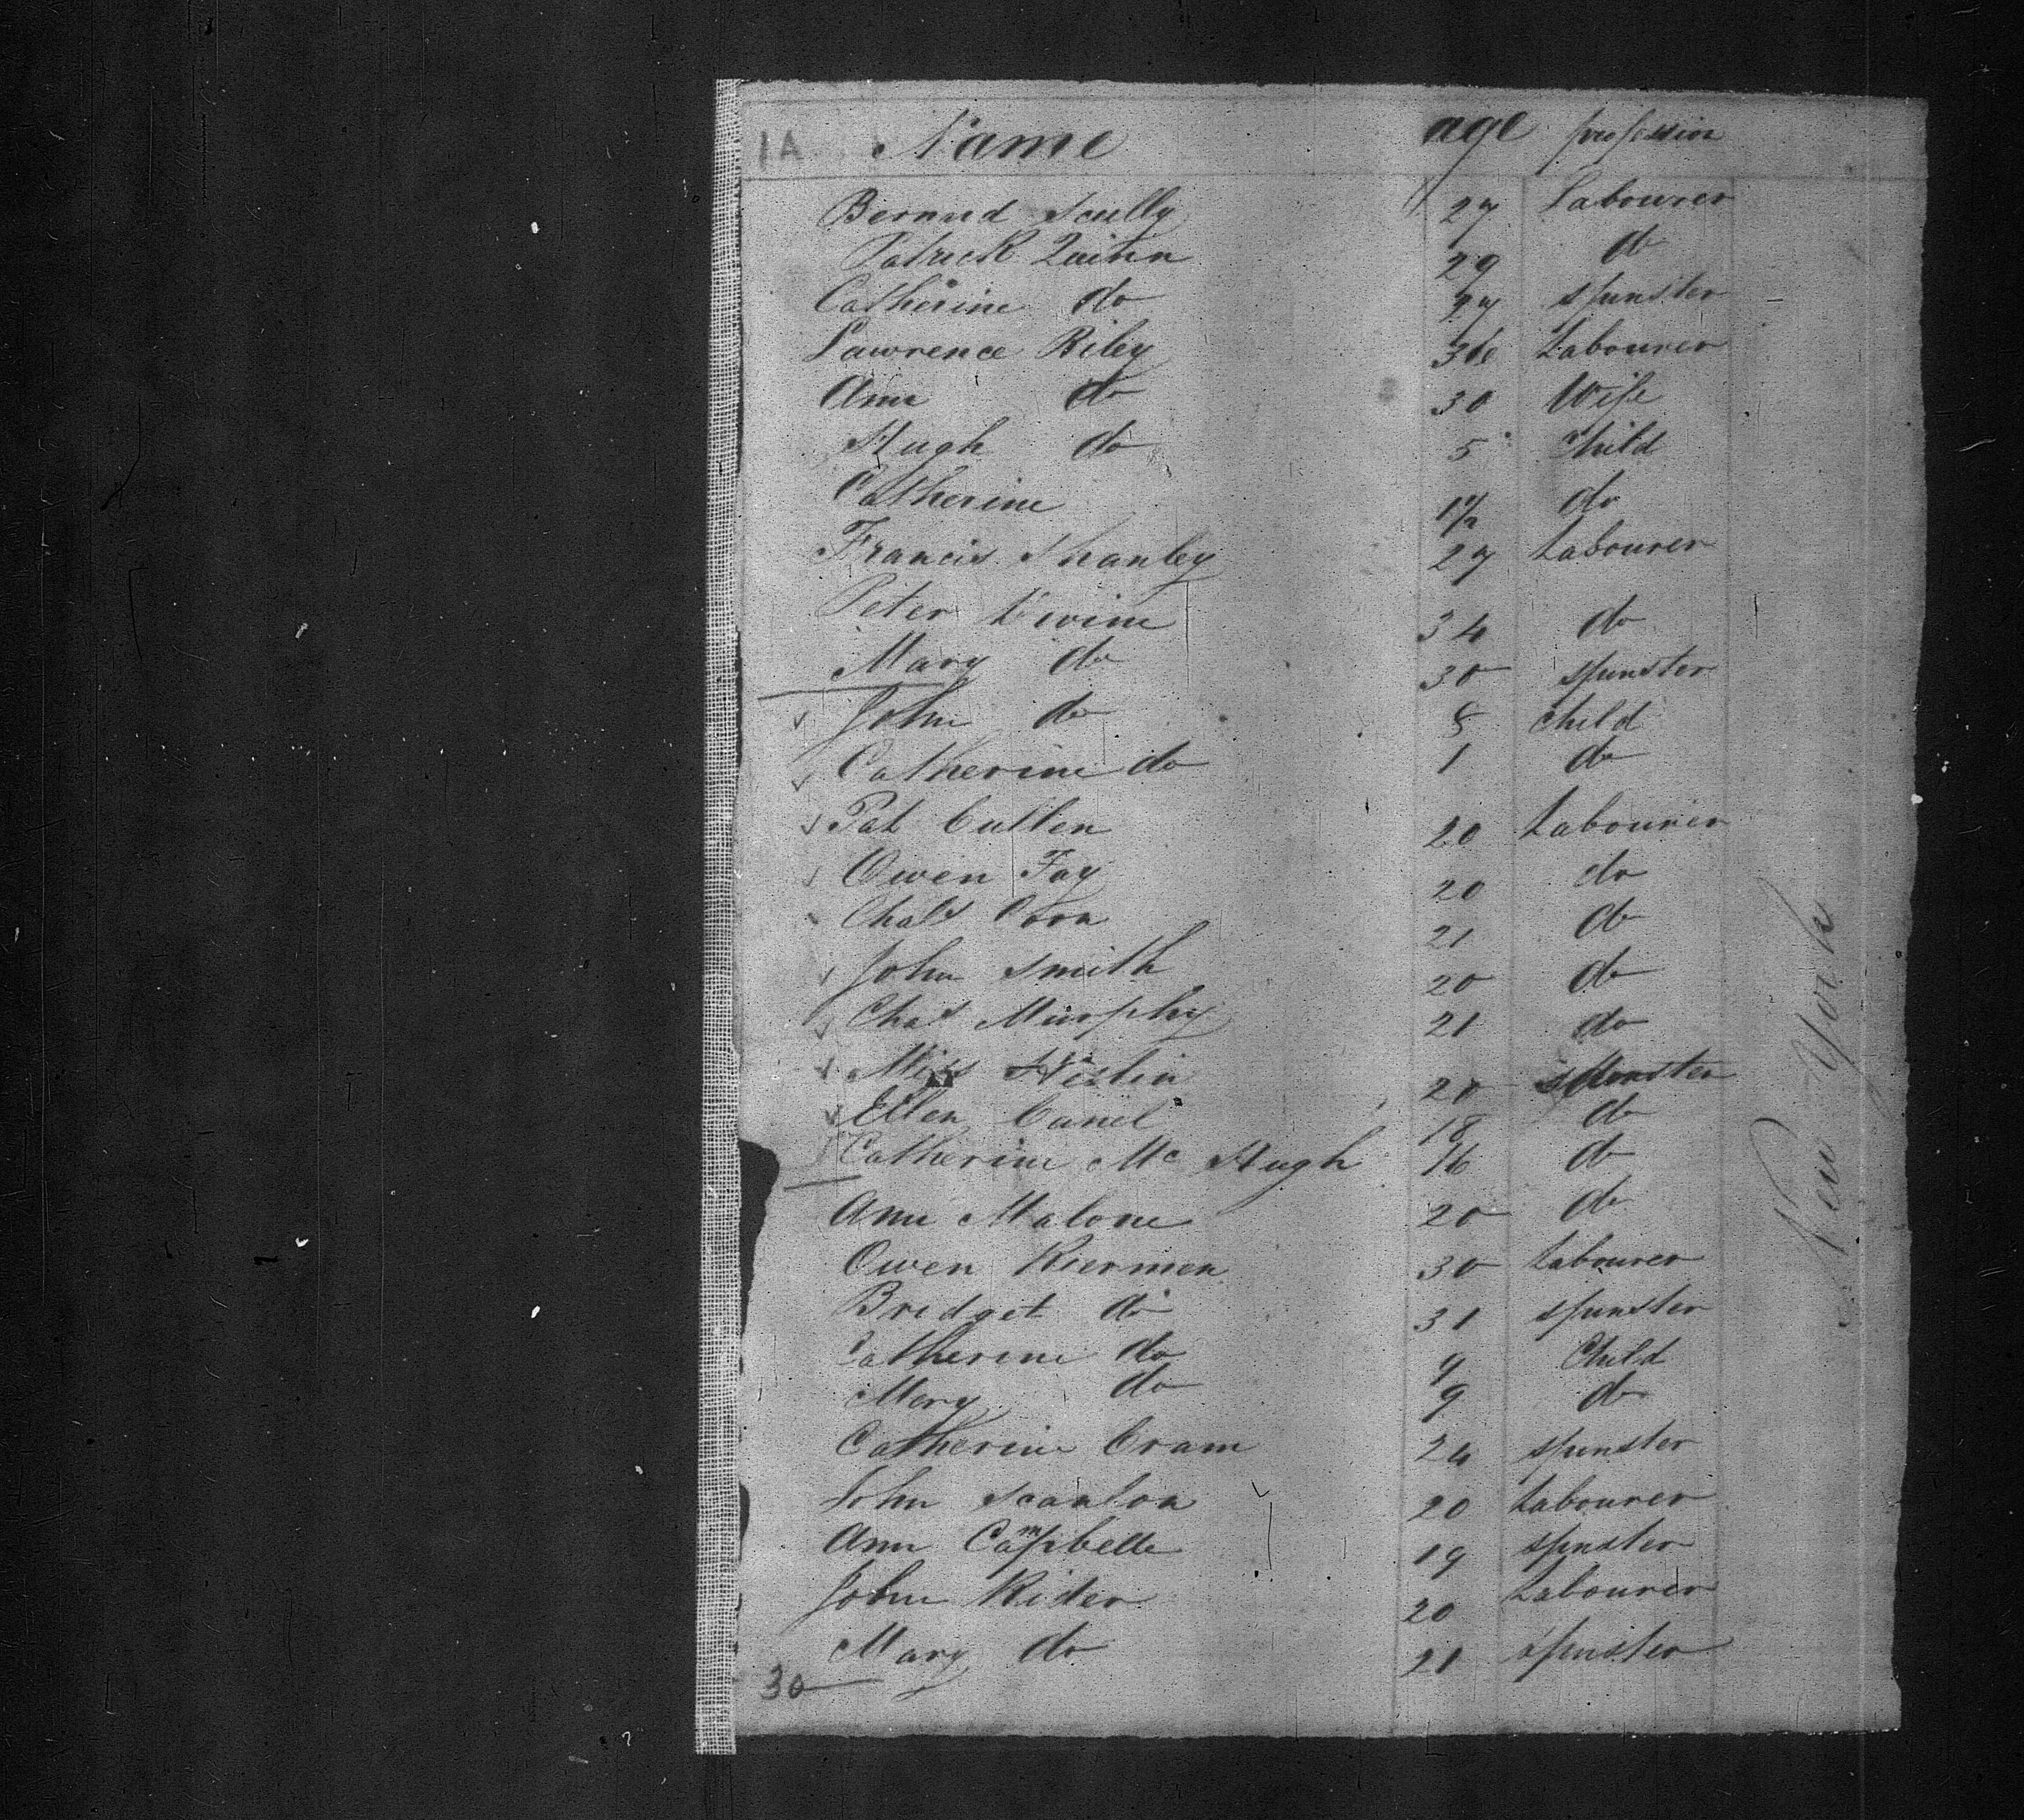 1A Name age profession
Bernard Scully 27 Labourer
Patrick Quinn 29 do
Catherine do 27 spinster
Lawrence Riley 36 Labourer
Ann do 30 Wife
Hugh do 5 Child
Catherine 1½ do
Francis Shanley 27 Labourer
Peter 34 do
Mary do 30 spinster
John do 8 child
Catherine do 1 do
Pat Cullen 20 Labourer
Owen Fay 20 do
Chas 21 do
John Smith 20 do
Chas Murphy 21 do
Miss 20 spinster
Ellen 18 do
Catherine Mc Hugh 16 do
Ann Malone 20 do
Owen Kiernien 30 Labourer
Bridget do 31 spinster
Catherine do 9 Child
Mary do 9 do
Catherine Cram 24 spinster
John Scanlon 20 Labourer
Ann Campbelle 19 spinster
John Rider 20 Labourer
Mary do 21 spinster
30
New York